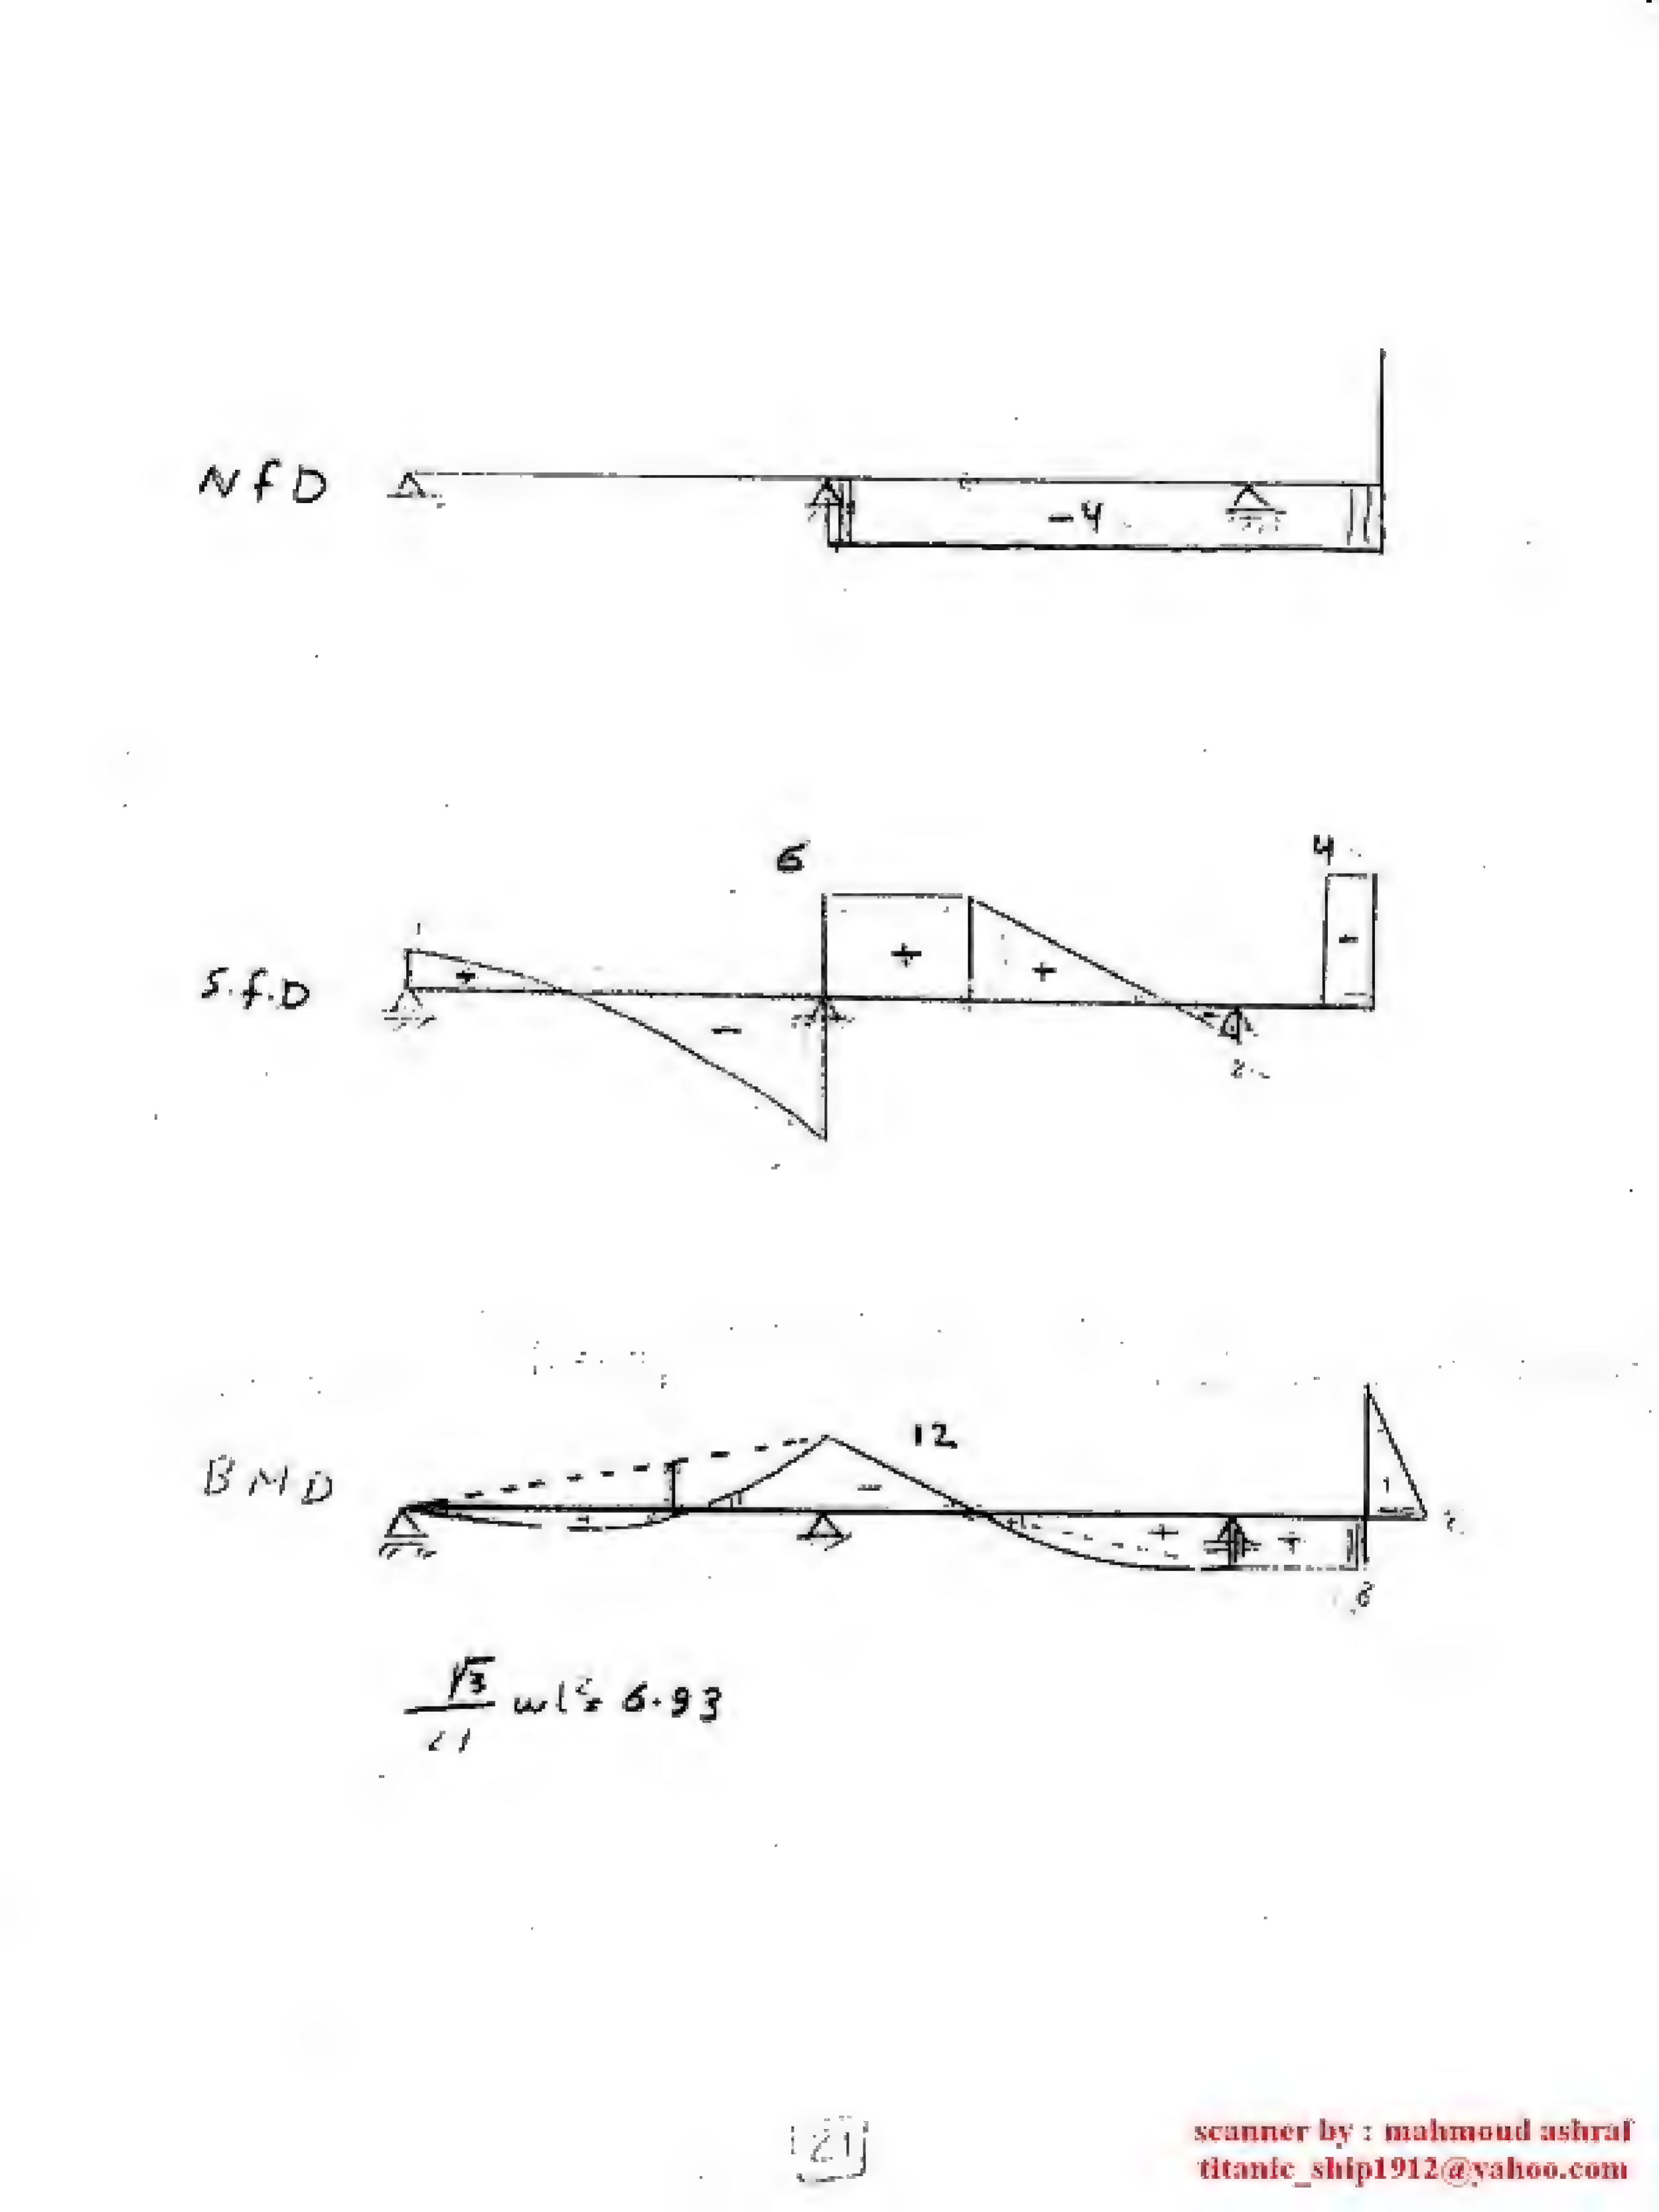 NFD
-4
6
4
1
+
+
+
+
S.F.D
-
-
2
12
BMD
-
+
+
8
√3 wl² = 6.93
21
scanner by : mahmoud ashraf
titanic_ship1912@yahoo.com